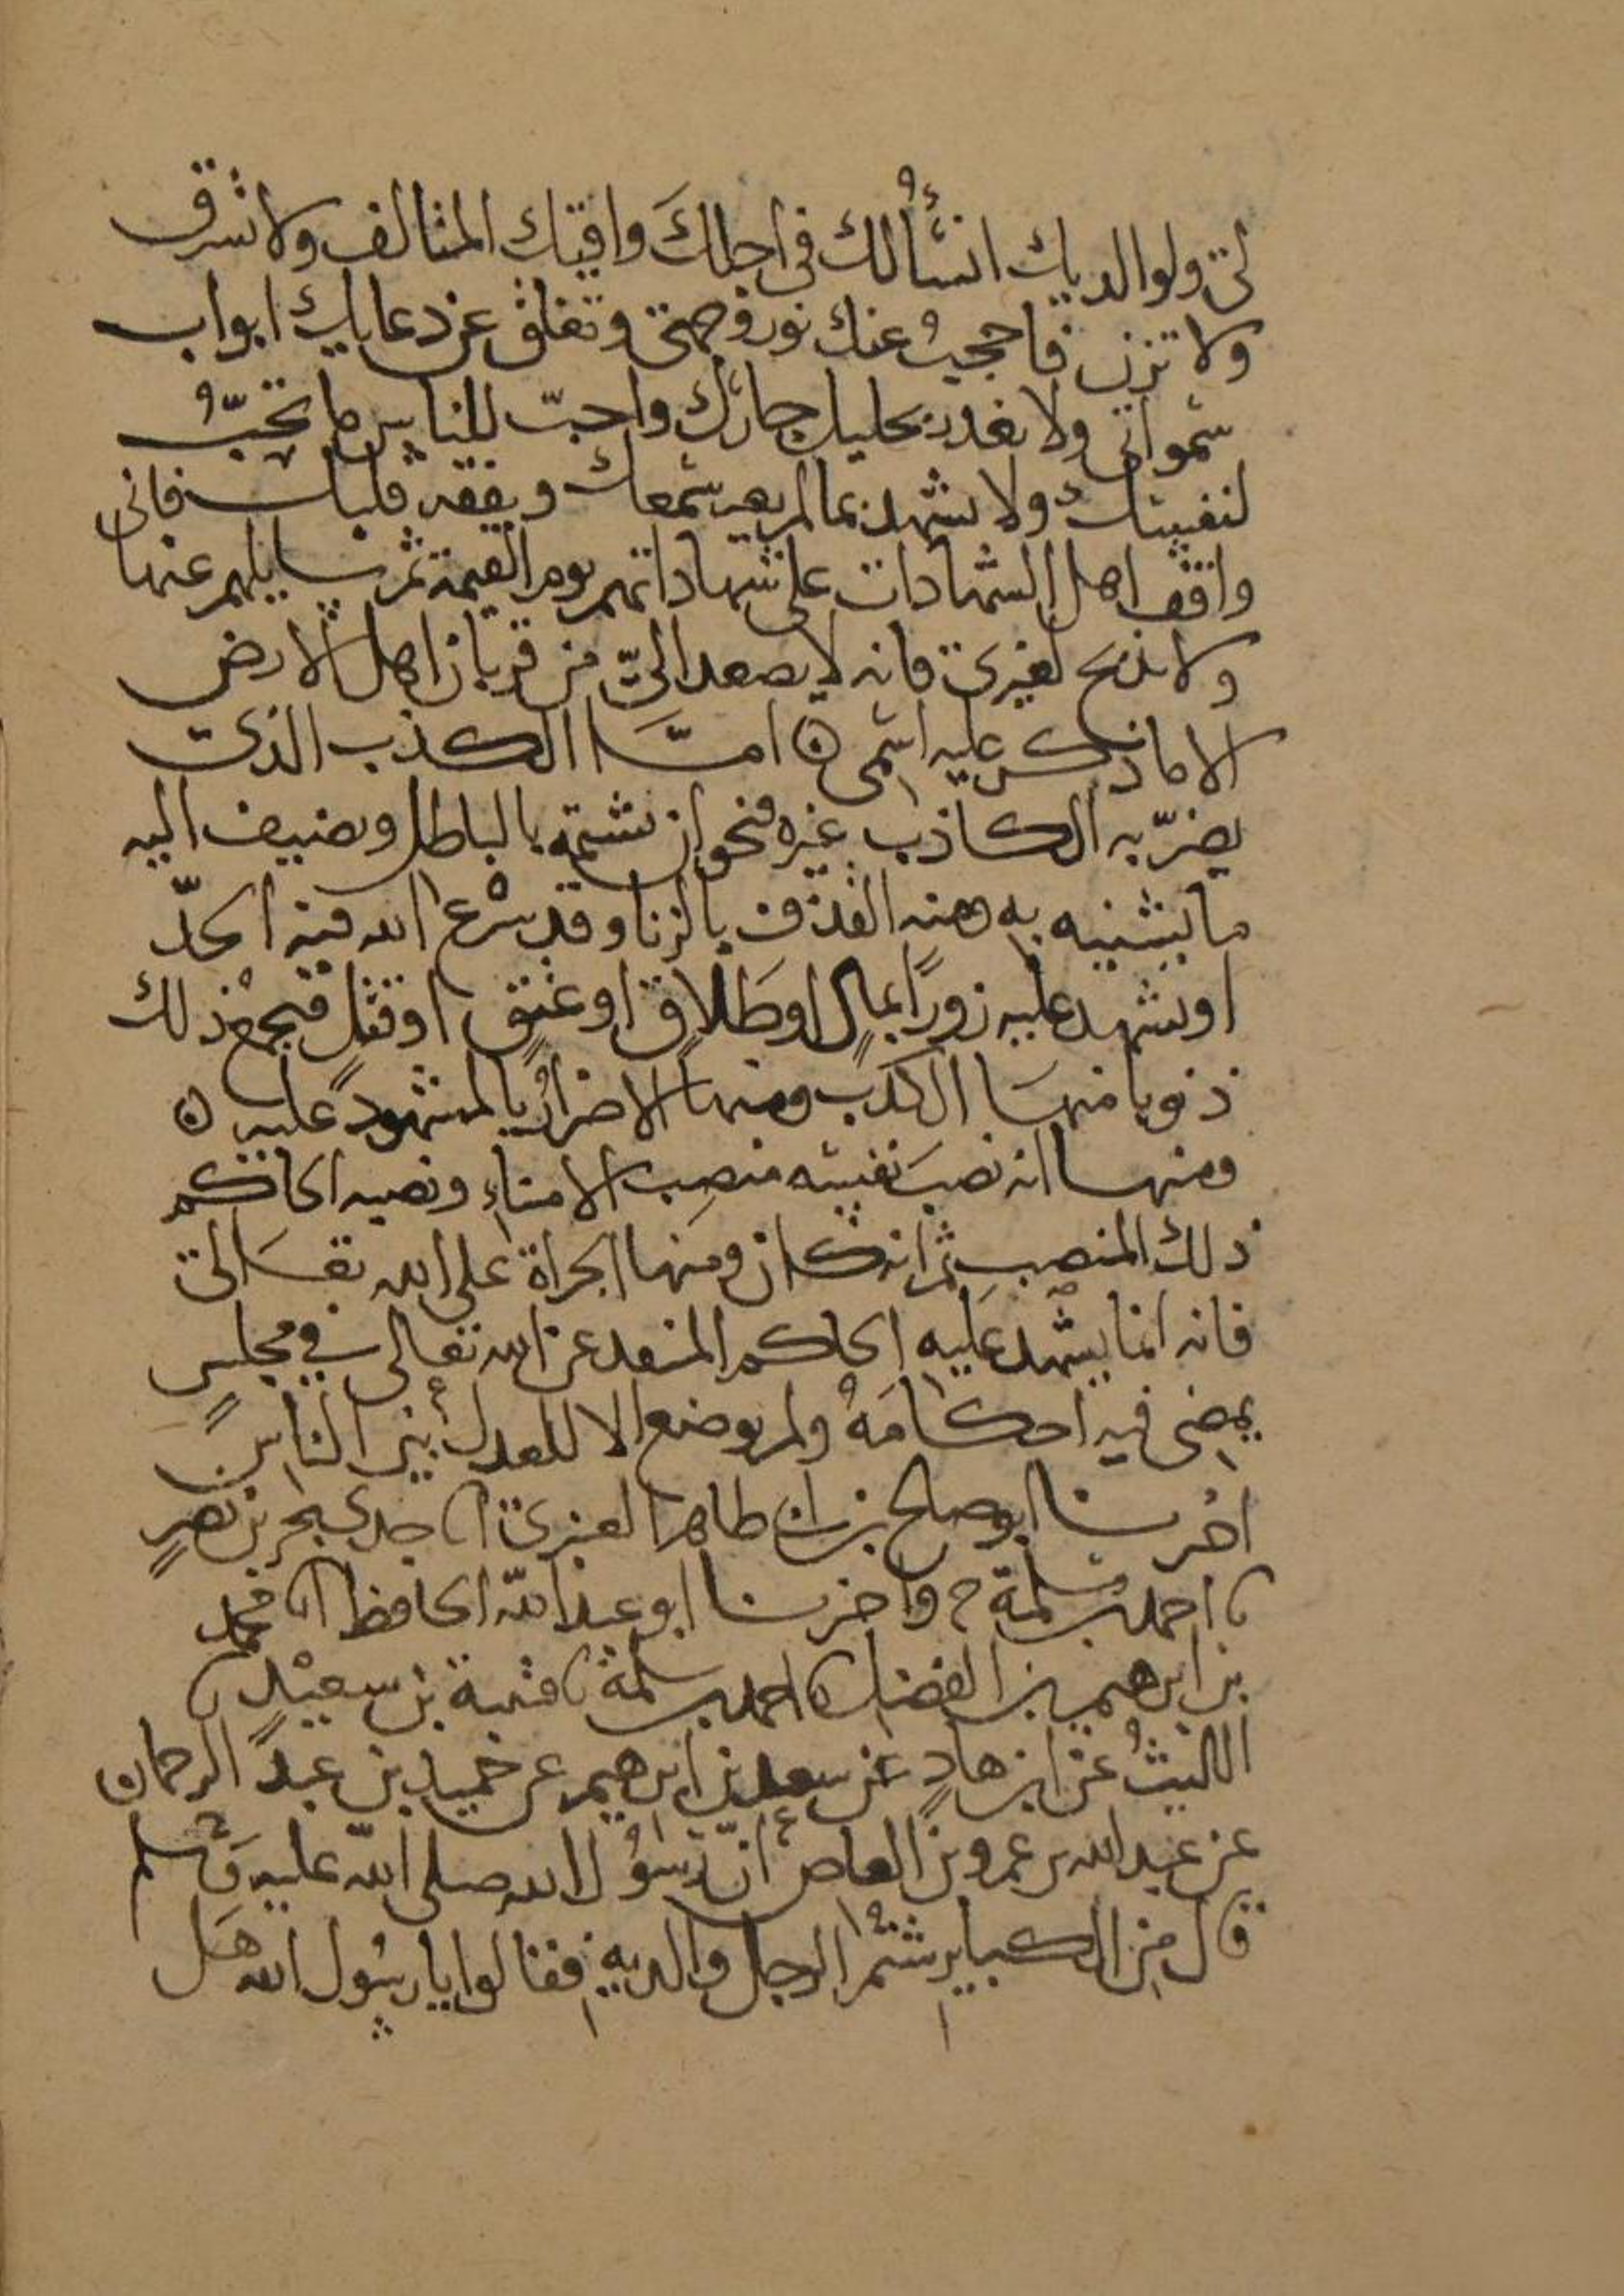 لى ولوالديك انسأ لك في اجلك واقيك المتالف ولا تسرق
ولا تزن فاحجب عنك نور وجهي وتغلق عن دعايك ابواب
سمواتي ولا تغدر بحليل جارك واحب للناس ما تحب
لنفسك ولا تشهد بما لم يعه سمعك ويفقه قلبك فاني
واقف اهل الشهادات على شهاداتهم يوم القيمة ثم سايلهم عنها
ولا تذبح لغيري فانه لا يصعد اليّ من قربان اهل الارض
الا ما ذكر عليه اسمي ۞ امّا الكذب الذي
يضرّ به الكاذب غيره فنحو ان يشتمه بالباطل ويضيف اليه
ما يشينه به ومنه القذف بالزنا وقد شرع الله فيه الحدّ
او يشهد عليه زورًا بمالٍ او طَلاقٍ او عتقٍ او قتلٍ فيجمع ذلك
ذنوبا منها الكذب ومنها الاضرار بالمشهود عليه ۞
ومنها انه نصب نفسه منصب الامناء ونصبه الحاكم
ذلك المنصب ثم انه كان ومنها الجراة على الله تعالى
فانه انما يشهد عليه الحاكم المنفد عن الله تعالى في مجلسٍ
يمضى فيه احكامَهُ ولم يوضع الا للعدل بين الناس
اخبرنا ابو صلح بن ابي طاهر العنبري انا جدي يحيى بن نصرٍ
نا احمد بن سلمة ح واخبرنا ابو عبد الله الحافظ انا محمد
بن ابرهيم بن الفضل نا احمد بن سلمة نا قتيبة بن سعيدٍ نا
الليثُ عن ابن هادٍ عن سعد بن ابرهيم عن حميد بن عبد الرحمان
عن عبد الله بن عمرو بن العاص أنّ رسُول الله صلى الله عليه وَسلم
قال من الكباير شتم الرجل والديه فقالوا يا رسُول الله هَل